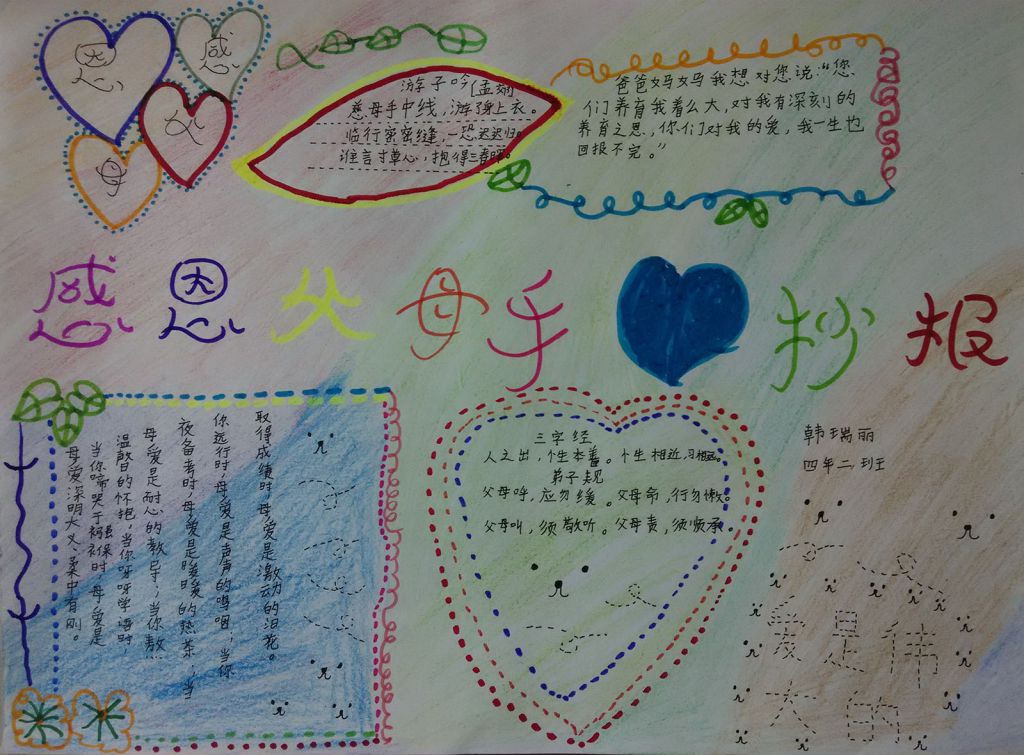 恩
感
父
母
游子吟[孟郊]
慈母手中线，游子身上衣。
临行密密缝，一恐迟迟归。
谁言寸草心，抱得三春晖。
爸爸妈妈我想对您说“您
们养育我着么大，对我有深刻的
养育之思，你们对我的爱，我一生也
回报不完。”
感恩父母手抄报
母爱深明大义、柔中有刚。
当你啼哭于襁褓时，母爱是
温馨的怀抱，当你呀呀学语时，
母爱是耐心的教导；当你熬
夜备考时，母爱是暖暖的热茶；当
你远行时，母爱是声声的；当你
取得成绩时，母爱是激动的泪花。
三字经
人之出，个生本善。个生相近，习相远。
弟子规
父母呼，应勿缓。父母命，行勿懒。
父母叫，须敬听。父母责，须顺承。
韩瑞丽
四年二班
爱是伟
大的